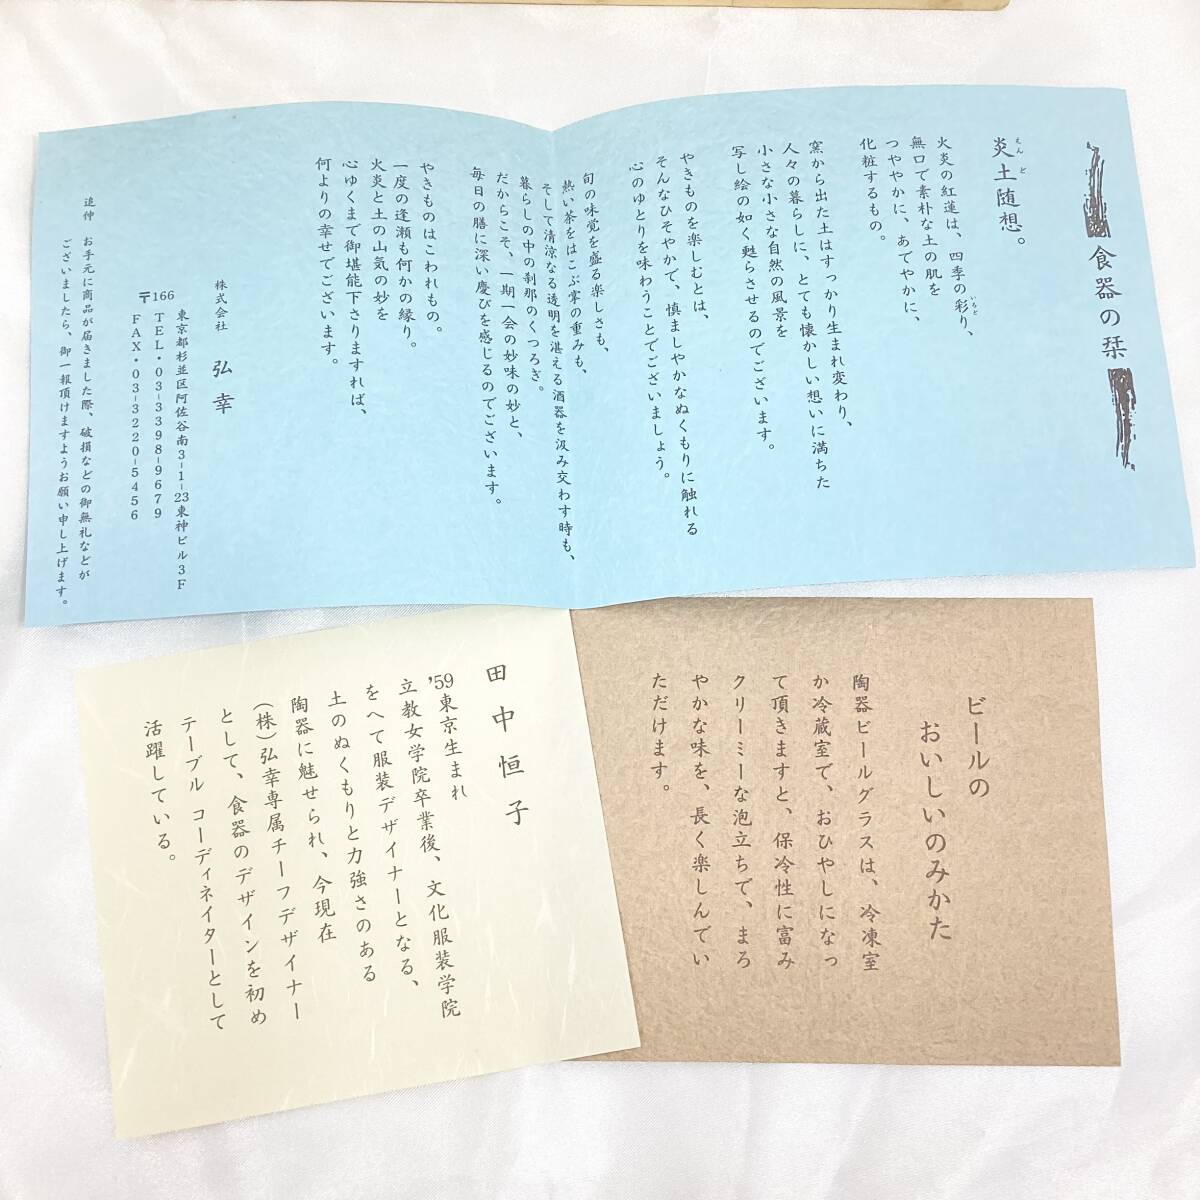 食器の栞
炎土随想。
えんど
火炎の紅蓮は、四季の彩り、
いろど
無口で素朴な土の肌を
つややかに、あでやかに、
化粧するもの。
窯から出た土はすっかり生まれ変わり、
人々の暮らしに、とても懐かしい想いに満ちた
小さな小さな自然の風景を
写し絵の如く甦らさせるのでございます。
やきものを楽しむとは、
そんなひそやかで、慎ましやかなぬくもりに触れる
心のゆとりを味わうことでございましょう。
旬の味覚を盛る楽しさも、
熱い茶をはこぶ掌の重みも、
そして清涼なる透明を湛える酒器を汲み交わす時も、
暮らしの中の刹那のくつろぎ。
だからこそ、一期一会の妙味の妙と、
毎日の膳に深い慶びを感じるのでございます。
やきものはこわれもの。
一度の逢瀬も何かの縁り。
火炎と土の山気の妙を
心ゆくまで御堪能下さりますれば、
何よりの幸せでございます。
株式会社 弘幸
東京都杉並区阿佐谷南3-1-23東神ビル3F
〒166 TEL・03-3398-9679
FAX・03-3220-5456
追伸 お手元に商品が届きました際、破損などの御無礼などが
ございましたら、御一報頂けますようお願い申し上げます。
ビールの
おいしいのみかた
陶器ビールグラスは、冷凍室
か冷蔵室で、おひやしになっ
て頂きますと、保冷性に富み
クリーミーな泡立ちで、まろ
やかな味を、長く楽しんでい
ただけます。
田中恒子
'59東京生まれ
立教女学院卒業後、文化服装学院
をへて服装デザイナーとなる、
土のぬくもりと力強さのある
陶器に魅せられ、今現在
（株）弘幸専属チーフデザイナー
として、食器のデザインを初め
テーブル コーディネイターとして
活躍している。